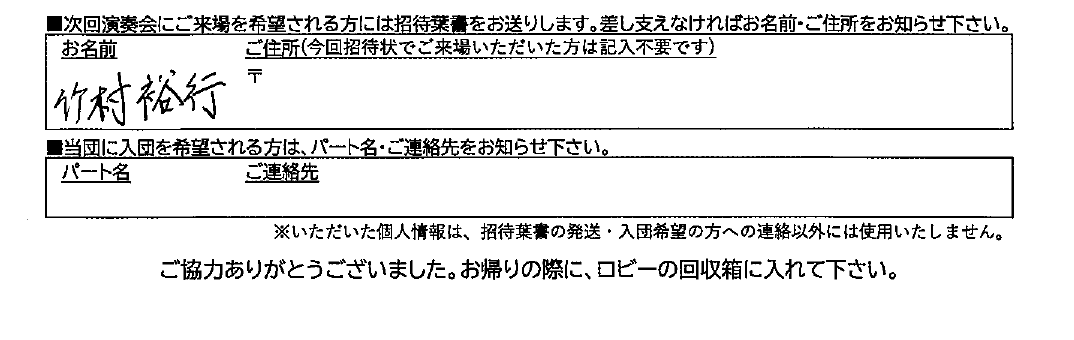 ■次回演奏会にご来場を希望される方には招待葉書をお送りします。差し支えなければお名前・ご住所をお知らせ下さい。
お名前 ご住所(今回招待状でご来場いただいた方は記入不要です)
〒
竹村裕行
■当団に入団を希望される方は、パート名・ご連絡先をお知らせ下さい。
パート名 ご連絡先
※いただいた個人情報は、招待葉書の発送・入団希望の方への連絡以外には使用いたしません。
ご協力ありがとうございました。お帰りの際に、ロビーの回収箱に入れて下さい。